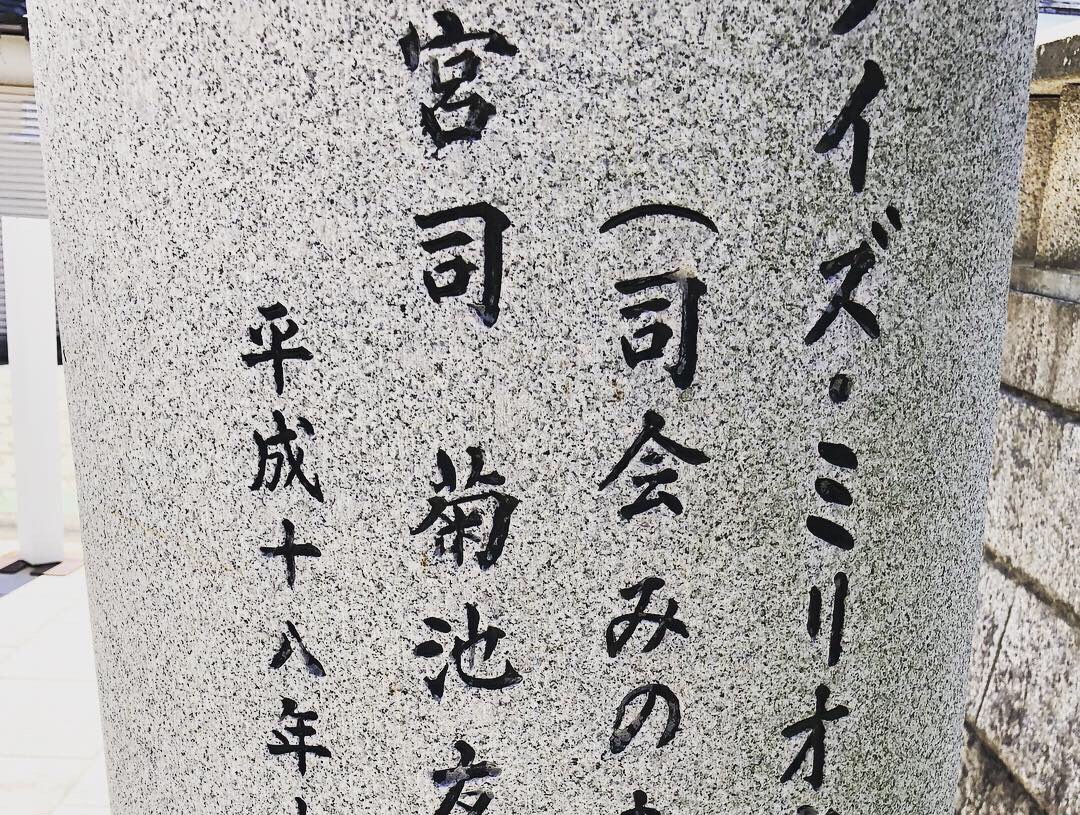 イズ・ミリオ
（司会みの
宮司 菊池
平成十八年